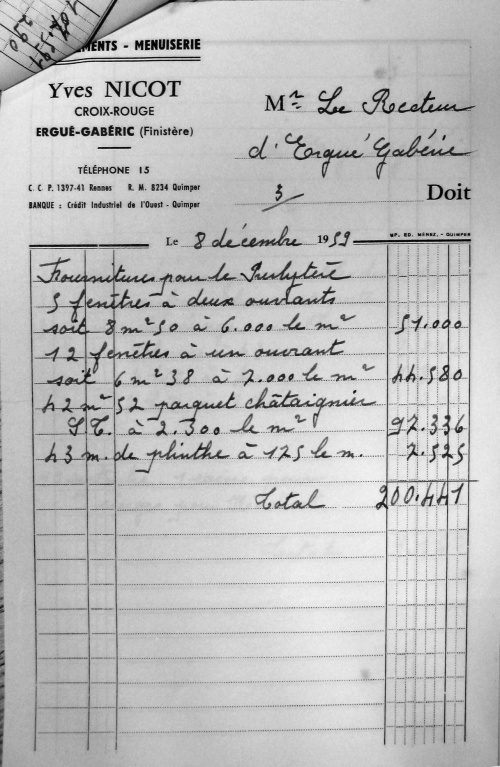 MENTS - MENUISERIE
Yves NICOT
CROIX-ROUGE
ERGUÉ-GABÉRIC (Finistère)
TÉLÉPHONE 15
C. C. P. 1397-41 Rennes R. M. 8234 Quimper
BANQUE : Crédit Industriel de l'Ouest - Quimper
Mr Le Recteur
d'Ergué Gabéric
Doit
MP. ED. MÉNEZ, - QUIMPER
Le 8 décembre 1959
Fournitures pour le Presbytère
5 fenêtres à deux ouvrants
soit 8 m² 50 à 6.000 le m² 51.000
12 fenêtres à un ouvrant
soit 6 m² 38 à 7.000 le m² 44.580
42 m² 32 parquet châtaignier
à 2.300 le m² 97.336
43 m. de plinthe à 175 le m. 7.525
Total 200.441